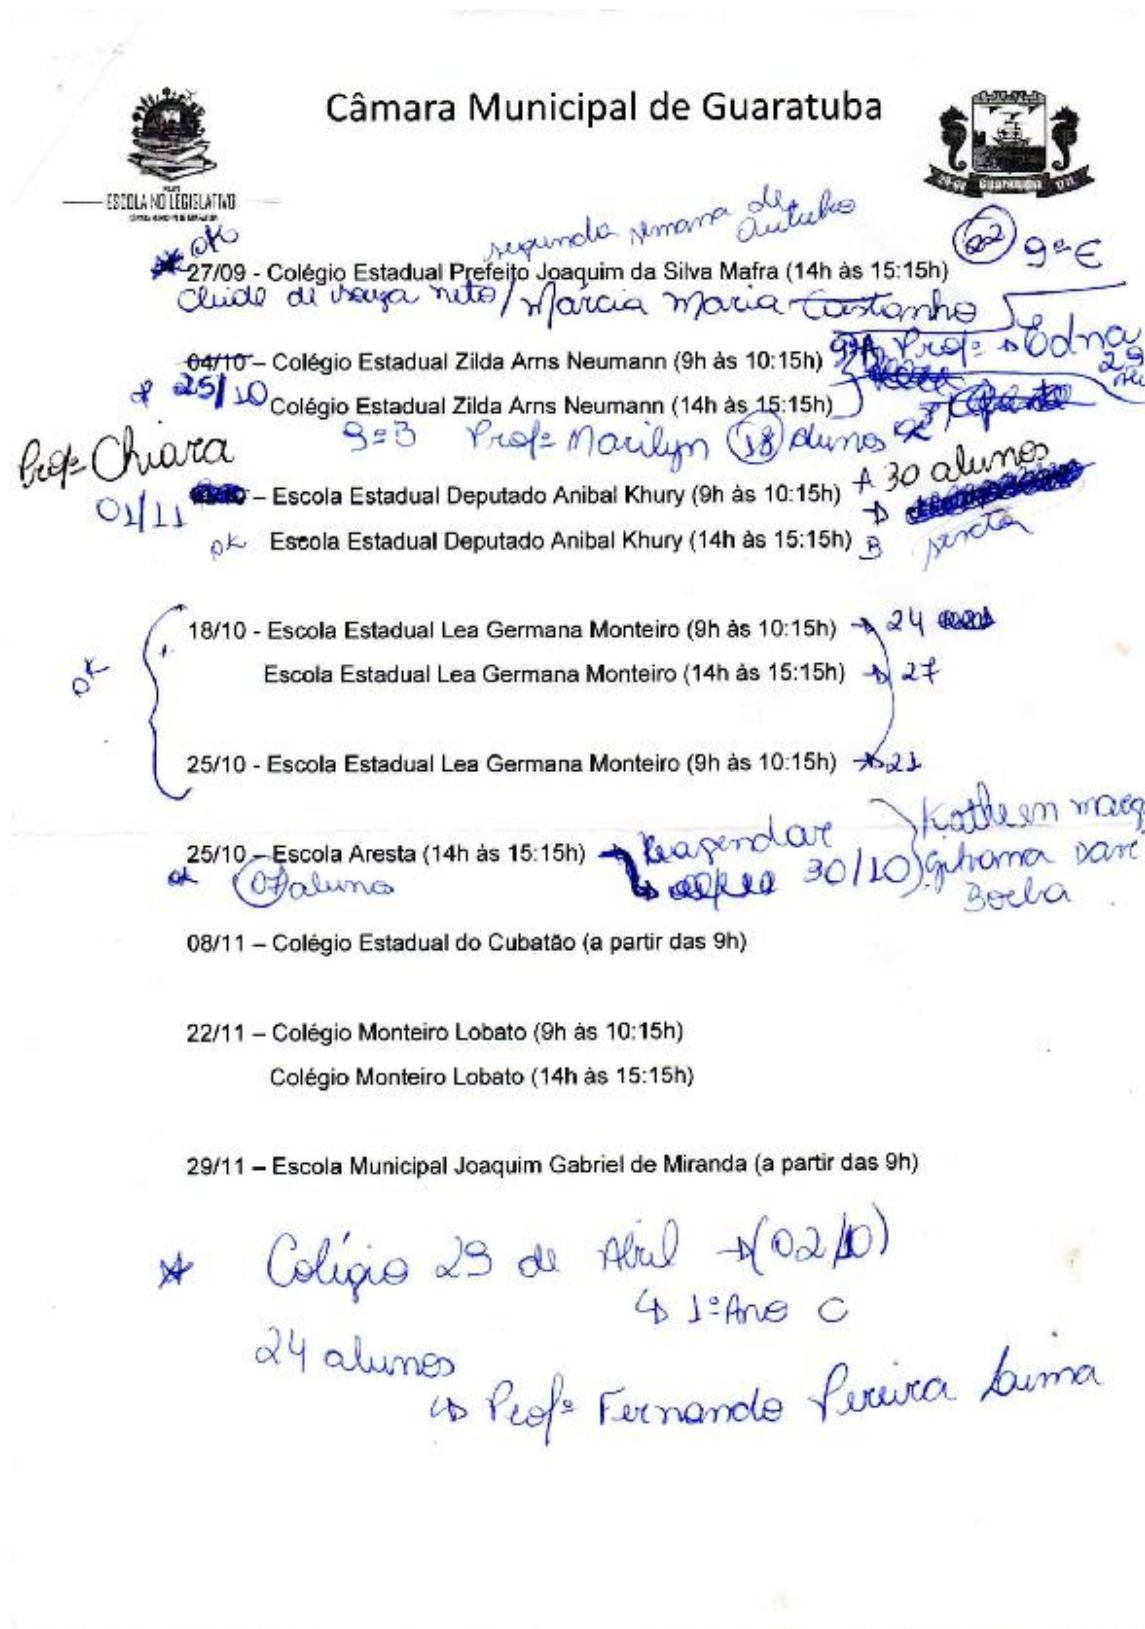 Câmara Municipal de Guaratuba
ESCOLA NO LEGISLATIVO
Guaratuba
segunda semana de
outubro
OK
22 9º E
27/09 - Colégio Estadual Prefeito Joaquim da Silva Mafra (14h às 15:15h)
Cleide de Souza neto / Márcia Maria Castanho
04/10 – Colégio Estadual Zilda Arns Neumann (9h às 10:15h) 9ºA Profª Edna
29
25/10
Colégio Estadual Zilda Arns Neumann (14h às 15:15h)
9º B Profª Marilyn 18 alunos
Profª Chiara
A 30 alunos
01/11 – Escola Estadual Deputado Anibal Khury (9h às 10:15h)
OK Escola Estadual Deputado Anibal Khury (14h às 15:15h) B sexta
18/10 - Escola Estadual Lea Germana Monteiro (9h às 10:15h) 24
OK
Escola Estadual Lea Germana Monteiro (14h às 15:15h) 27
25/10 - Escola Estadual Lea Germana Monteiro (9h às 10:15h) 21
25/10 – Escola Aresta (14h às 15:15h) Reagendar
07 aluno 30/10
08/11 – Colégio Estadual do Cubatão (a partir das 9h)
22/11 – Colégio Monteiro Lobato (9h às 10:15h)
Colégio Monteiro Lobato (14h às 15:15h)
29/11 – Escola Municipal Joaquim Gabriel de Miranda (a partir das 9h)
Colégio 29 de Abril (02/10)
1º Ano C
24 alunos
Profº Fernando Pereira Lima